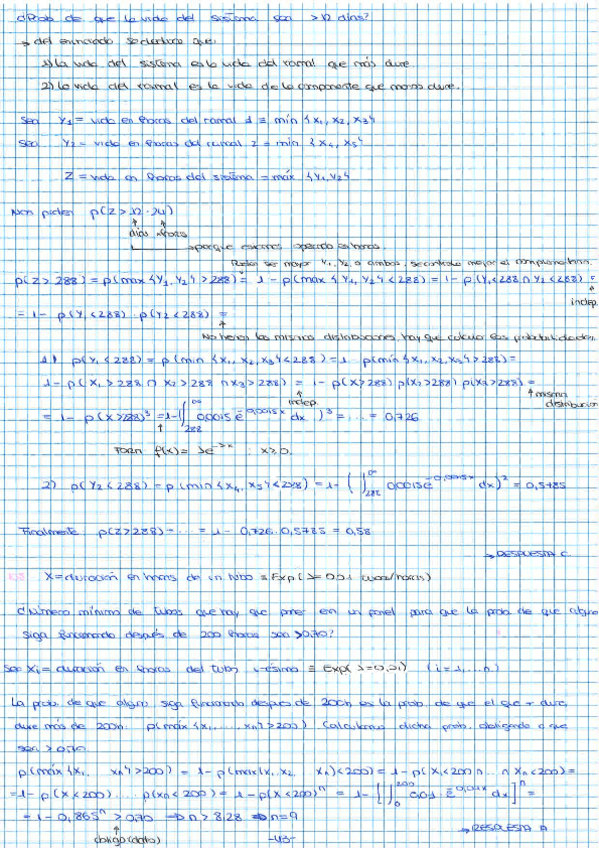 ¿Prob de que la vida del sistema sea >12 días?
→ del enunciado se deduce que:
1) La vida del sistema es la vida del ramal que más dure.
2) La vida del ramal es la vida de la componente que menos dure.
Sea Y₁ = vida en horas del ramal 1 = mín {x₁, x₂, x₃}
Sea Y₂ = vida en horas del ramal 2 = mín {x₄, x₅}
Z = vida en horas del sistema = máx {Y₁, Y₂}
Nos piden p(Z > 12 · 24)
días horas
→ porque estamos operando en horas.
ser mayor Y₁, Y₂ o ambos, se controla mejor el complementario.
p(Z > 288) = p(max {Y₁, Y₂} > 288) = 1 - p(max {Y₁, Y₂} < 288) = 1 - p(Y₁ < 288 ∩ Y₂ < 288) =
indep.
= 1 - p(Y₁ < 288) · p(Y₂ < 288) =
No tienen las mismas distribuciones, hay que calcular las probabilidades.
1) p(Y₁ < 288) = p(min {x₁, x₂, x₃} < 288) = 1 - p(min {x₁, x₂, x₃} > 288) =
1 - p(x₁ > 288 ∩ x₂ > 288 ∩ x₃ > 288) = 1 - p(x₁ > 288) p(x₂ > 288) p(x₃ > 288) =
indep.
misma distribución
= 1 - p(x > 288)³ = 1 - (∫₂₈₈^∞ 0,0015 e^(-0,0015x) dx)³ = ... = 0,726
f(x) = λe^(-λx) : x ≥ 0
2) p(Y₂ < 288) = p(min {x₄, x₅} < 288) = 1 - (∫₂₈₈^∞ 0,0015 e^(-0,0015x) dx)² = 0,5785
Finalmente p(Z > 288) = ... = 1 - 0,726 · 0,5785 = 0,58
→ RESPUESTA C
X = duración en horas de un tubo ≡ Exp(λ = 0,01
¿Número mínimo de tubos que hay que poner en un panel para que la prob de que alguno
siga funcionando después de 200 horas sea >0,70?
Sea Xi = duración en horas del tubo i-ésimo ≡ Exp(λ = 0,01) (i = 1, ... n)
La prob. de que alguno siga funcionando después de 200h es la prob. de que el que + dure,
dure más de 200h. p(máx {x₁, ... xn} > 200) Calculamos dicha prob. obligando a que
sea > 0,70.
p(máx {x₁, ... xn} > 200) = 1 - p(max(x₁, x₂, xn) < 200) = 1 - p(x₁ < 200 ∩ .. ∩ xn < 200) =
= 1 - p(x < 200) ... p(xn < 200) = 1 - p(x < 200)ⁿ = 1 - [∫₀²⁰⁰ 0,01 e^(-0,01x) dx]ⁿ =
= 1 - 0,865ⁿ > 0,70 ⇒ n > 8,28 ⇒ n = 9
obligo (dato)
-43-
→ RESPUESTA A